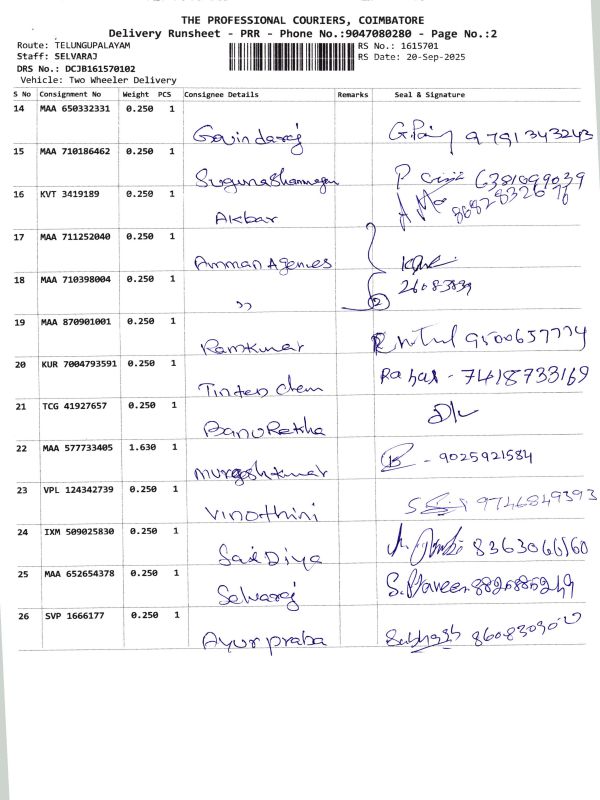 THE PROFESSIONAL COURIERS, COIMBATORE
Delivery Runsheet - PRR - Phone No.:9047080280 - Page No.:2
Route: TELUNGUPALAYAM
Staff: SELVARAJ
DRS No.: DCJB161570102
Vehicle: Two Wheeler Delivery
RS No.: 1615701
RS Date: 20-Sep-2025
S No Consignment No Weight PCS Consignee Details Remarks Seal & Signature
14 MAA 650332331 0.250 1
Govindaraj 9791343243
15 MAA 710186462 0.250 1
Sugunashanmugam 6381099039
16 KVT 3419189 0.250 1
Akbar
17 MAA 711252040 0.250 1
Amman Agencies
18 MAA 710398004 0.250 1
" 2
19 MAA 870901001 0.250 1
Ramkumar 9500657774
20 KUR 7004793591 0.250 1
Tinten chem - 7418733169
21 TCG 41927657 0.250 1
Banu Rekha
22 MAA 577733405 1.630 1
Murgeshkumar - 9025921584
23 VPL 124342739 0.250 1
Vinothini 9746849393
24 IXM 509025830 0.250 1
Sai Diya
25 MAA 652654378 0.250 1
Selvaraj S. Praveen
26 SVP 1666177 0.250 1
Ayurpraba Subhash